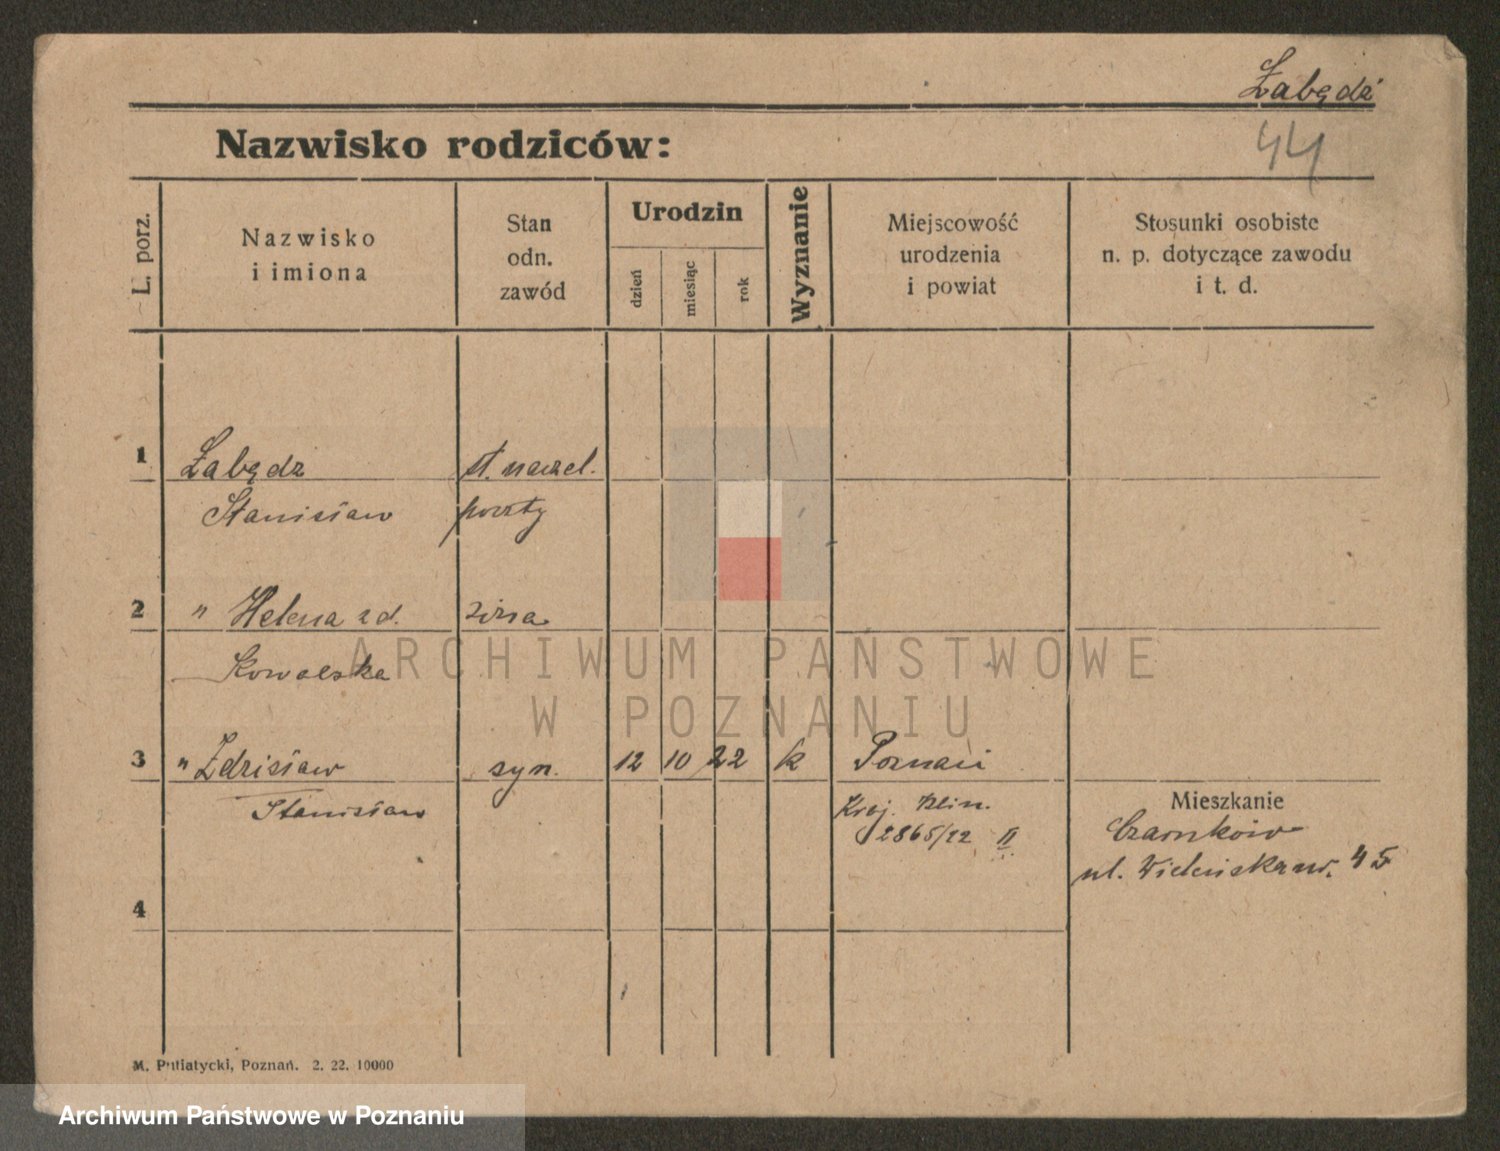 Łabędź
44
Nazwisko rodziców:
L. porz.
Nazwisko
i imiona
Stan
odn.
zawód
Urodzin
dzień
miesiąc
rok
Wyznanie
Miejscowość
urodzenia
i powiat
Stosunki osobiste
n. p. dotyczące zawodu
i t. d.
1
Łabędz
st. naczel.
Stanisław
poczty
2
" Helena zd.
żona
Kowalska
3
" Zdzisław
syn.
12
10
22
k
Poznań
Stanisław
Kraj. Klin.
2865/22 II
Mieszkanie
Czarnków
ul. Wieleńska nr. 45
4
M. Putiatycki, Poznań. 2. 22. 10000
ARCHIWUM PAŃSTWOWE
W POZNANIU
Archiwum Państwowe w Poznaniu